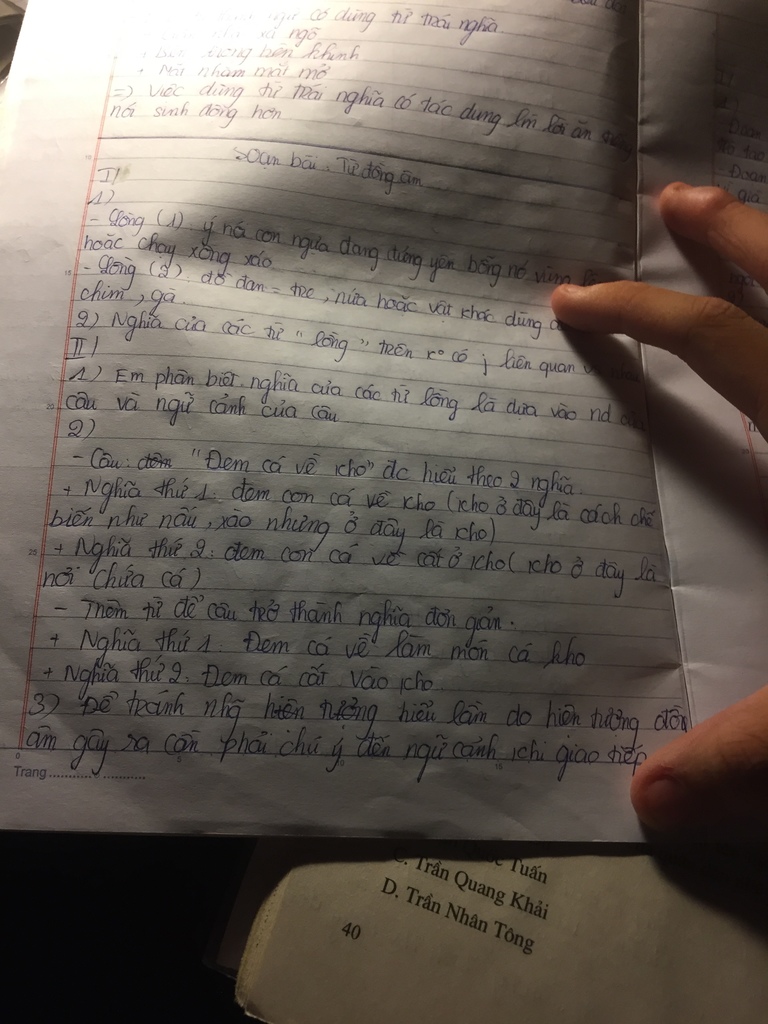 ngữ có dùng từ trái nghĩa
ngõ
bên khinh
+ Mắt nhắm mắt mở
=> Việc dùng từ trái nghĩa có tác dụng lm lời ăn tiếng
nói sinh động hơn
Soạn bài: Từ đồng âm
I/
1)
- Lồng (1): ý nó con ngựa đang đứng yên bỗng nó vùng lên
hoặc chạy xồng xáo
- Lồng (2): đồ đan = tre, nứa hoặc vật khác dùng
chim, gà.
2) Nghĩa của các từ "lồng" trên ko có j liên quan
II/
1) Em phân biệt nghĩa của các từ lồng là dựa vào nd của
câu và ngữ cảnh của câu
2)
- Câu: "Đem cá về kho" đc hiểu theo 2 nghĩa.
+ Nghĩa thứ 1: đem con cá về kho (kho ở đây là cách chế
biến như nấu, xào nhưng ở đây là kho)
+ Nghĩa thứ 2: đem con cá về cất ở kho (kho ở đây là
nơi chứa cá)
- Thêm từ để câu trở thành nghĩa đơn giản.
+ Nghĩa thứ 1: Đem cá về làm món cá kho
+ Nghĩa thứ 2: Đem cá cất vào kho
3) Để tránh nhg hiện tượng hiểu lầm do hiện tượng đồng
âm gây ra cần phải chú ý đến ngữ cảnh khi giao tiếp
Trang
Tuấn
C. Trần Quang Khải
D. Trần Nhân Tông
40